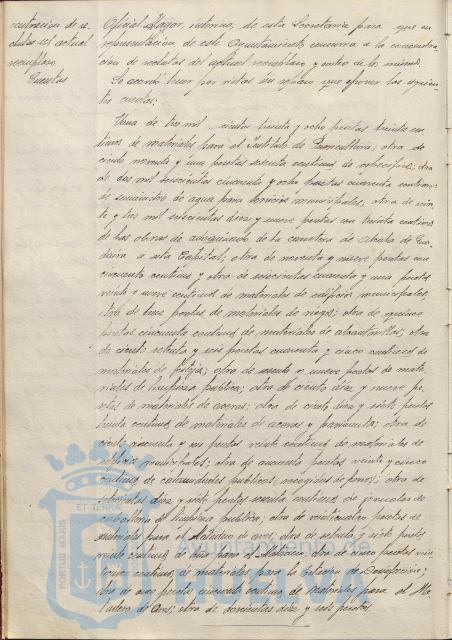 centración de re-
clutas del actual
reemplazo
Cuentas
Oficial Mayor, interino, de esta Secretaría para que en
representación de este Ayuntamiento concurra a la concentra-
ción de reclutas del actual reemplazo y sorteo de la misma.
Se acordó tener por vistas su abono que ofrecen las siguien-
tes cuentas:
Una de tres mil ciento treinta y ocho pesetas treinta cén-
timos de materiales para el Instituto de Puericultura; otra de
ciento noventa y una pesetas setenta céntimos de específicos; otra
de dos mil seiscientas cincuenta y ocho pesetas cuarenta céntimos
de suministro de agua para servicios municipales, otra de vein-
te y tres mil setecientas diez y nueve pesetas con treinta céntimos
de las obras de adoquinado de la carretera de Alcalá de Gua-
daira a esta Capital; otra de noventa y nueve pesetas con
cincuenta céntimos y otra de seiscientas cuarenta y una pesetas
veinte y nueve céntimos de materiales de edificios municipales,
otra de tres pesetas de materiales de riegos; otra de quince
pesetas cincuenta céntimos de materiales de alcantarillas; otra
de ciento setenta y seis pesetas cuarenta y cinco céntimos de
materiales de festejos; otra de sesenta y nueve pesetas de mate-
riales de limpieza pública; otra de ciento diez y nueve pe-
setas de materiales de aceras; otra de ciento diez y siete pesetas
treinta céntimos de materiales de aceras y pavimento; otra de
ciento cincuenta y seis pesetas veinte céntimos de materiales de
edificios municipales; otra de cincuenta pesetas veinte y cinco
céntimos de calamidades públicas, recogidas de perros; otra de
diez y siete pesetas sesenta céntimos de jornales de
de limpieza pública; otra de veinticuatro pesetas de
materiales para el Matadero de aves; otra de setenta y siete pesetas
veinte céntimos de para el Matadero; otra de cinco pesetas vein-
te céntimos de materiales para la Estación de Desinfección;
otra de once pesetas cincuenta céntimos de materiales para el Ma-
tadero de Aves; otra de doscientas diez y seis pesetas
PORTUS MARIS
ET TERRÆ
Ayuntamiento de
HUELVA